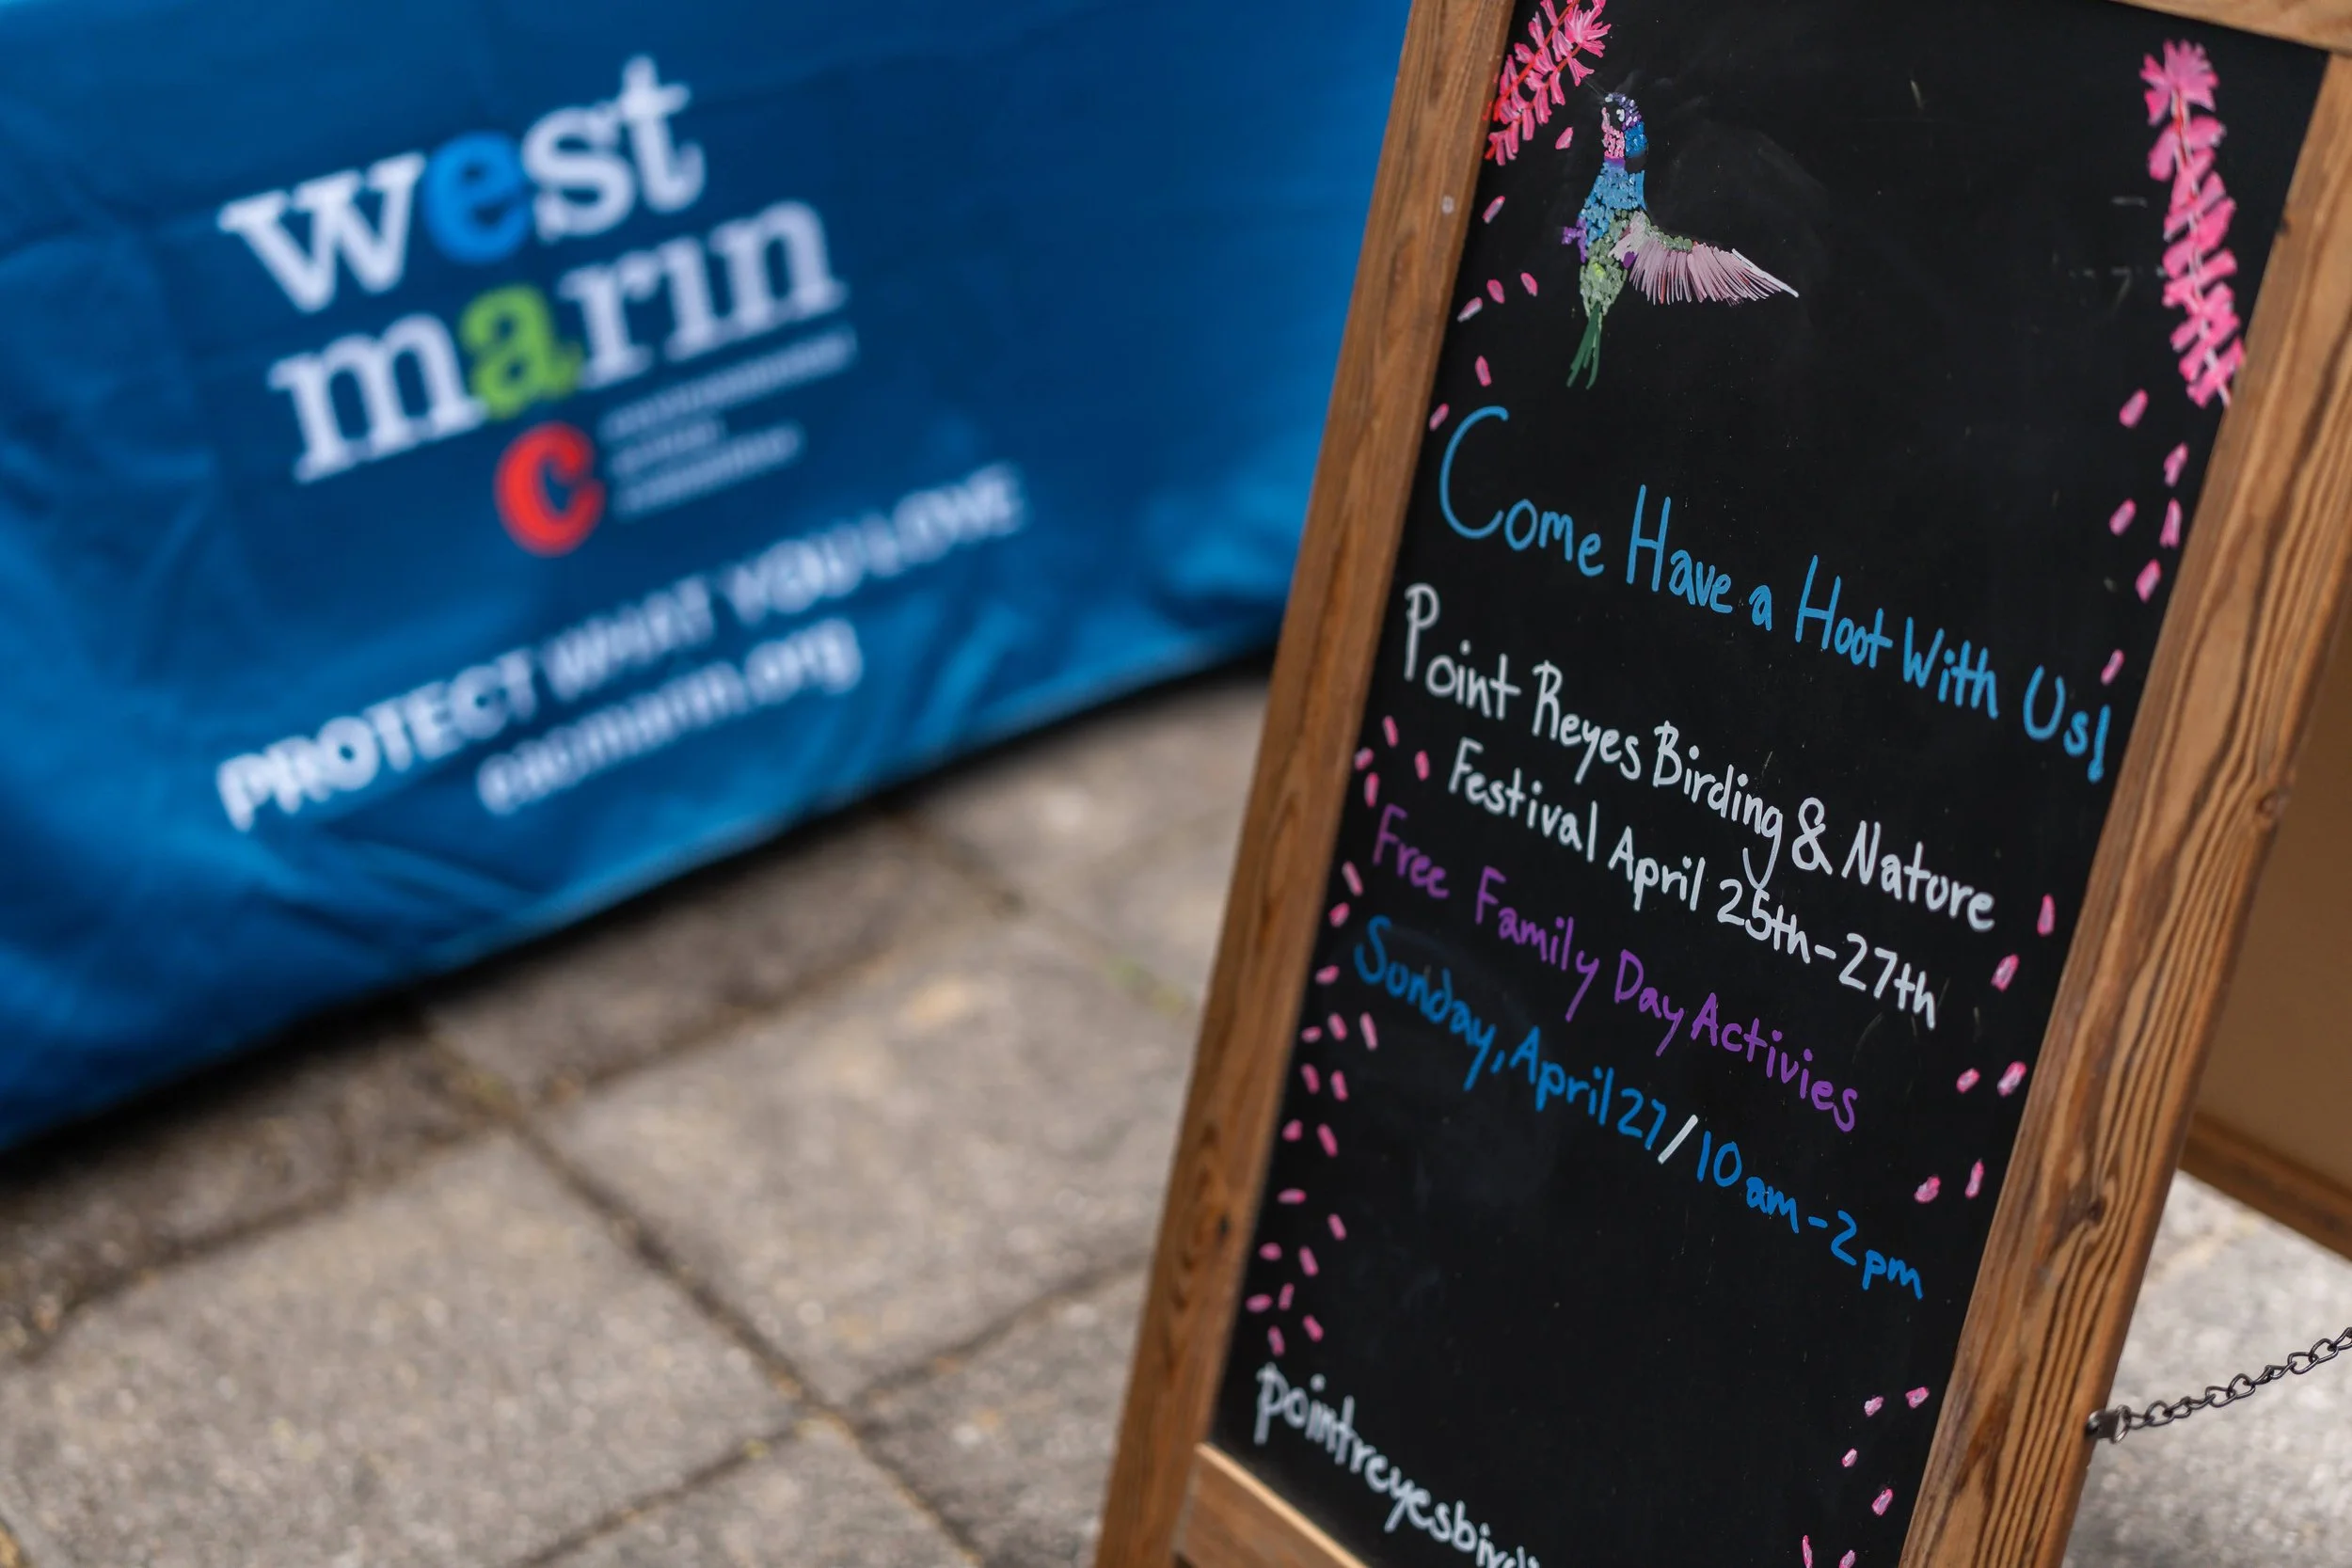 west
marin
environmental
action
committee
PROTECT WHAT YOU LOVE
eacmarin.org
Come Have a Hoot With Us!
Point Reyes Birding & Nature
Festival April 25th-27th
Free Family Day Activies
Sunday, April 27/10am-2pm
pointreyesbird